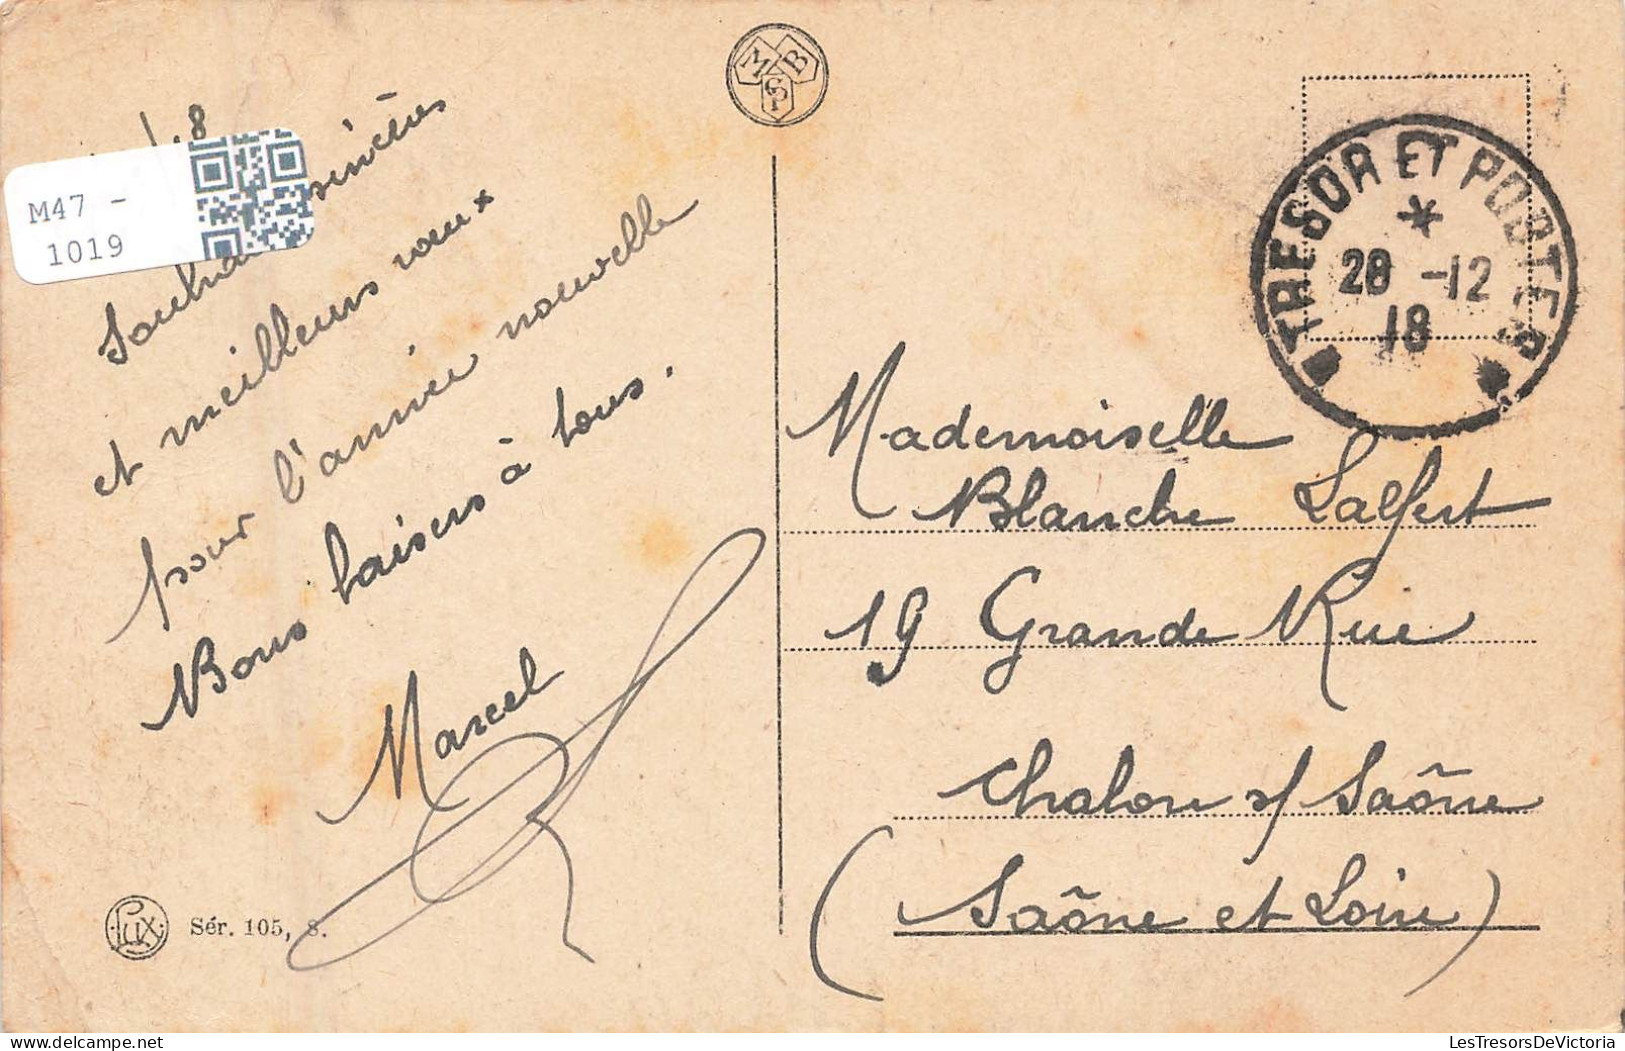 18
M47 -
1019
Souhaits sincères
et meilleurs vœux
pour l'année nouvelle
Bons baisers à tous.
Marcel
LUX
Sér. 105, 8.
M B
S
TRESOR ET POSTES
*
28 -12
18
Mademoiselle
Blanche Lalfert
19 Grande Rue
Chalon s/ Saône
(Saône et Loire)
www.LesTresorsDeVictoria